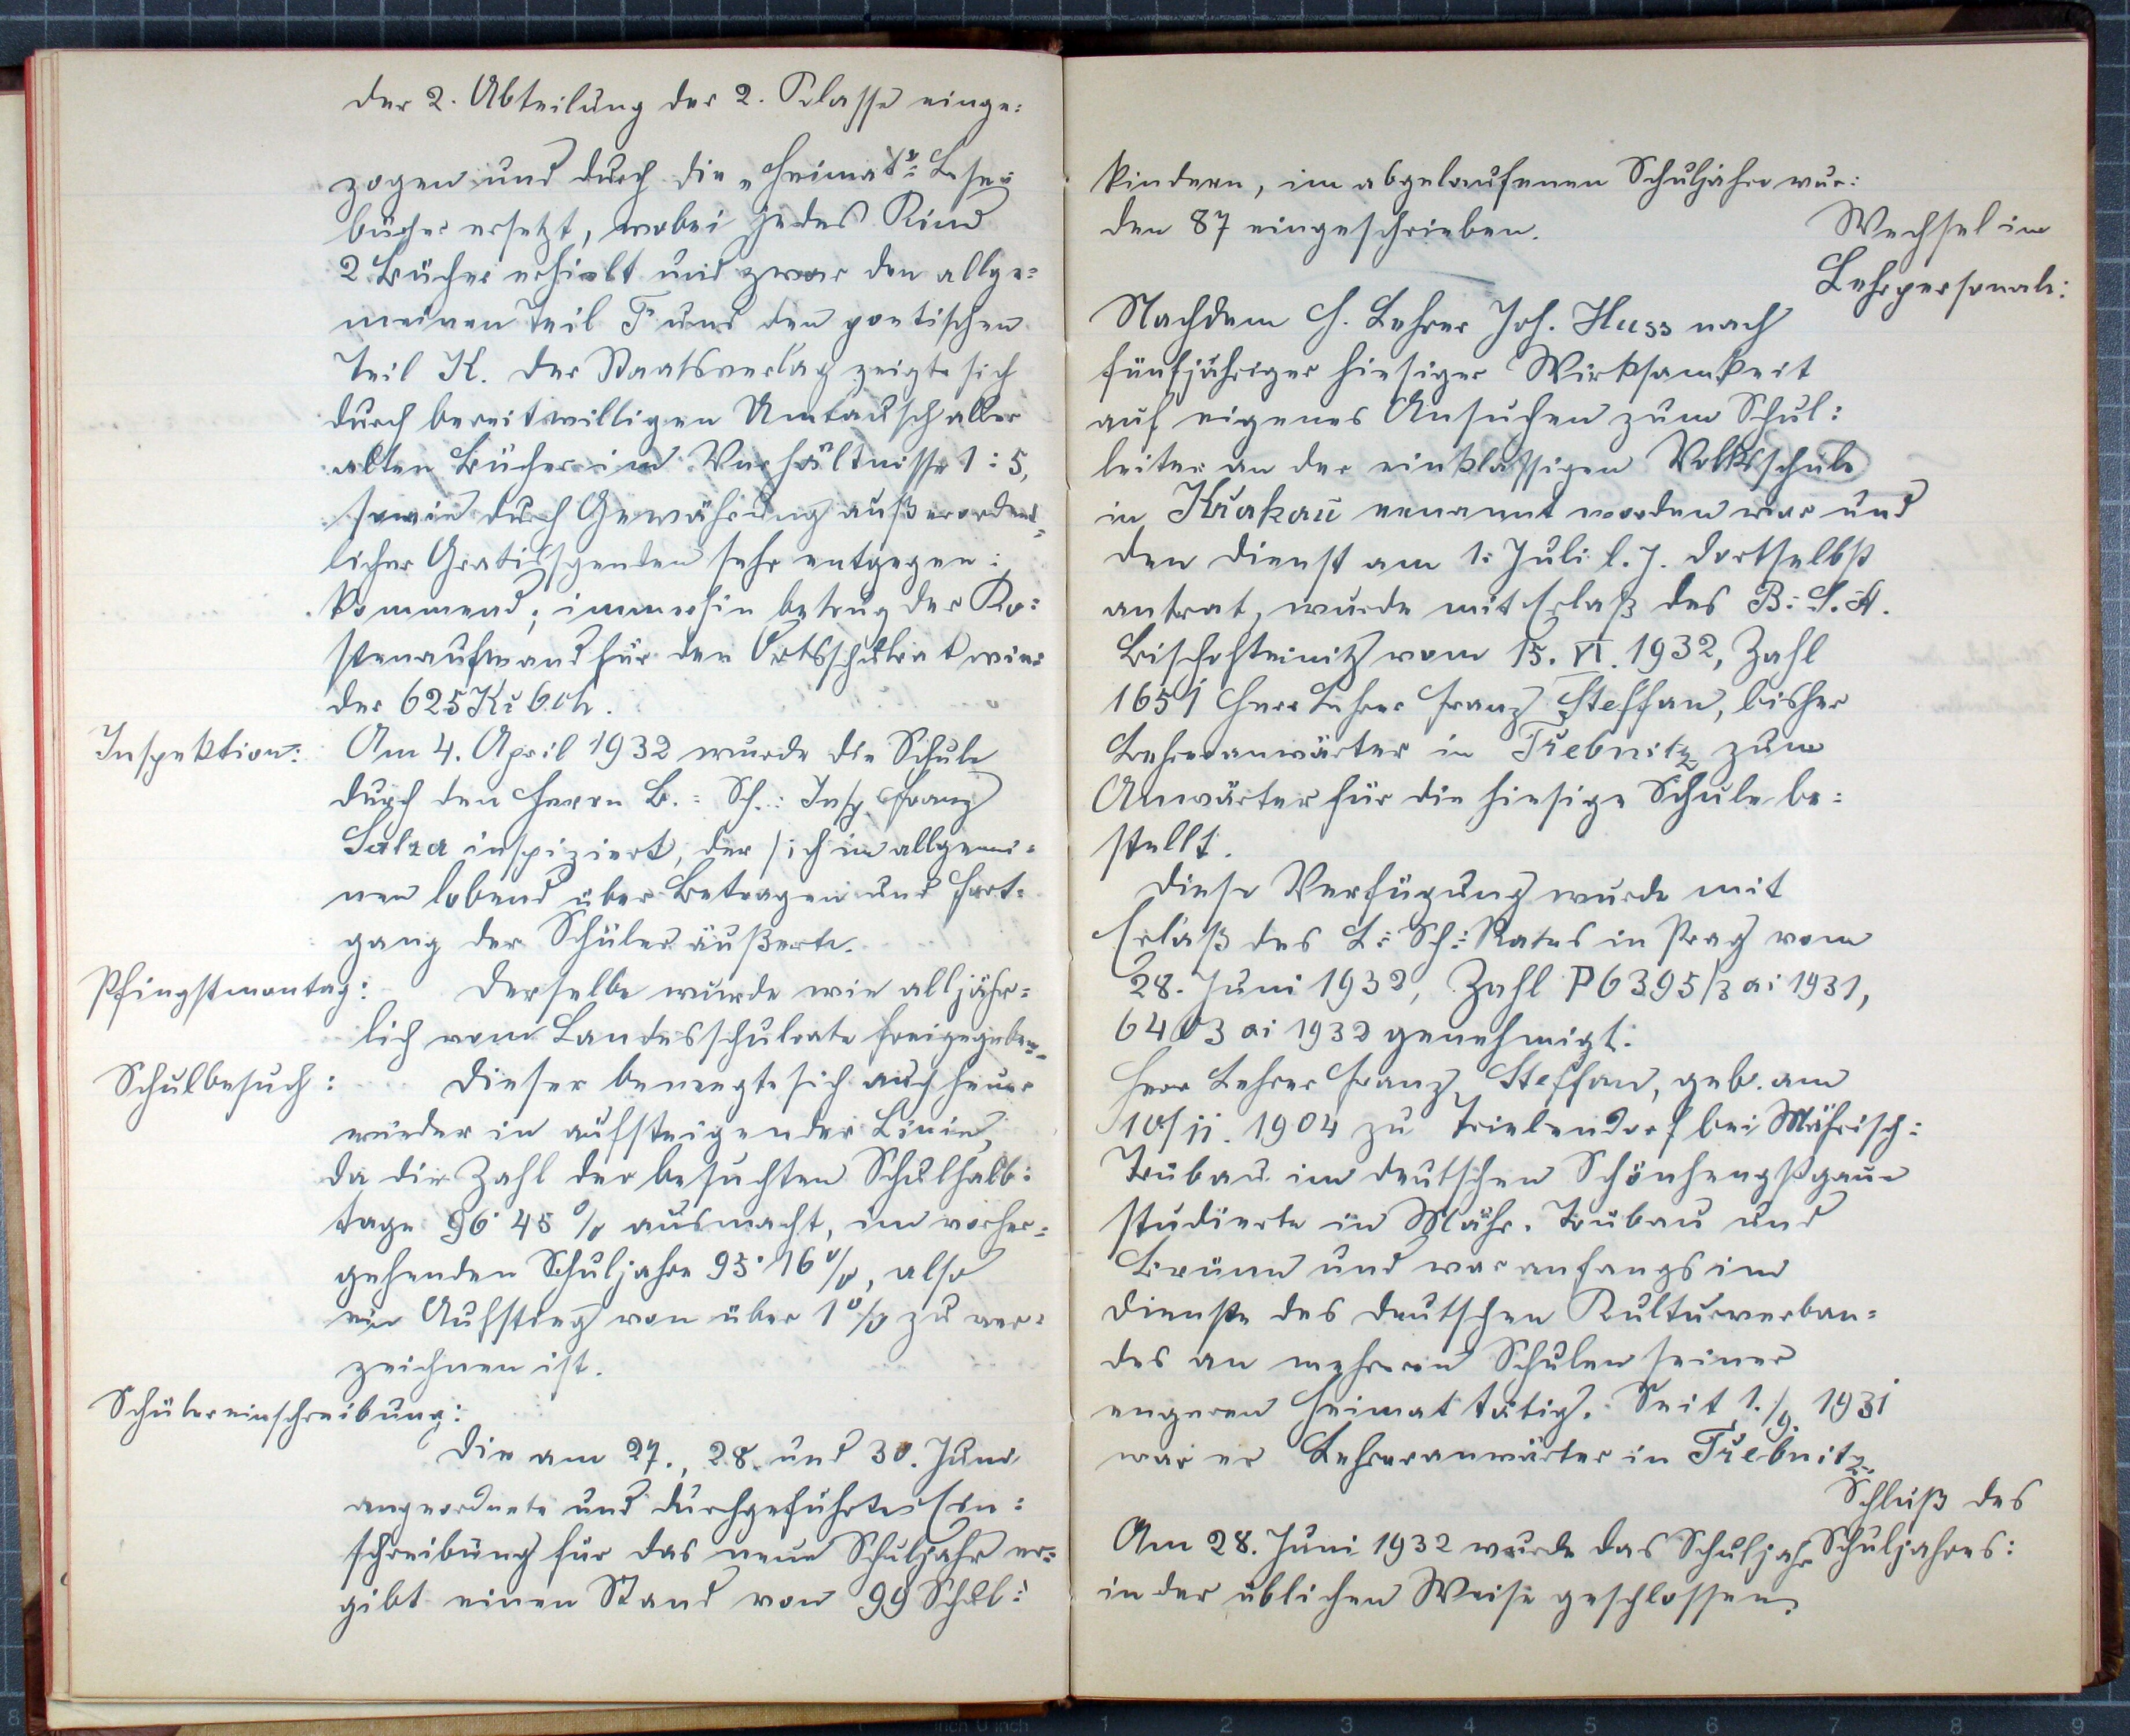 der 2. Abteilung der 2. Klasse einge-
zogen und durch die „Heimat"-Lese-
bücher ersetzt, wobei jedes Kind
2 Bücher erhielt und zwar den allge-
meinen Teil F und den poetischen
Teil K. Der Staatsverlag zeigte sich
durch bereitwilligen Umtausch aller
alten Bücher im Verhältnisse 1:5,
sowie durch Gewährung außerordent-
licher Gratisspenden sehr entgegen-
kommend; immerhin betrug der Ko-
stenaufwand für den Ortsschulrat wie-
der 625 Kč 60 h.
Inspektion: Am 4. April 1932 wurde die Schule
durch den Herrn B.-Sch.-Insp. Franz
Salza inspiziert, der sich im allgemei-
nen lobend über Betragen und Fort-
gang der Schüler äußerte.
Pfingstmontag: Derselbe wurde wie alljähr-
lich vom Landesschulrate freigegeben.
Schulbesuch: Dieser bewegte sich auch heuer
wieder in aufsteigender Linie,
da die Zahl der besuchten Schulhalb-
tage 96·45 % ausmacht, im vorher-
gehenden Schuljahre 95·16 %, also
ein Aufstieg von über 1 % zu ver-
zeichnen ist.
Schülereinschreibung:
Die am 27., 28. und 30. Juni
angeordnete und durchgeführte Ein-
schreibung für das neue Schuljahr er-
gibt einen Stand von 99 Schul-
kindern, im abgelaufenen Schuljahre wur-
den 87 eingeschrieben.
Wechsel im
Lehrpersonale:
Nachdem H. Lehrer Joh. Huss nach
fünfjähriger hiesiger Wirksamkeit
auf eigenes Ansuchen zum Schul-
leiter an der einklassigen Volksschule
in Hrakau ernannt worden war und
den Dienst am 1. Juli l. J. dortselbst
antrat, wurde mit Erlaß des B. S. A.
Bischofteinitz vom 15. VI. 1932, Zahl
1651 Herr Lehrer Franz Steffan, bisher
Lehreranwärter in Třebnitz zum
Anwärter für die hiesige Schule be-
stellt.
Diese Verfügung wurde mit
Erlaß des L.-Sch.-Rates in Prag vom
28. Juni 1932, Zahl P 6395/3 ai 1931,
6403 ai 1932 genehmigt.
Herr Lehrer Franz Steffan, geb. am
10/ii. 1904 zu Triebendorf bei Mährisch-
Trübau im deutschen Schönhengstgaue
studierte in Mähr. Trübau und
Brünn und war anfangs im
Dienste des deutschen Kulturverban-
des an mehreren Schulen seiner
engeren Heimat tätig. Seit 1./9. 1931
war er Lehreranwärter in Třebnitz.
Schluß des
Schuljahres:
Am 28. Juni 1932 wurde das Schuljahr
in der üblichen Weise geschlossen.